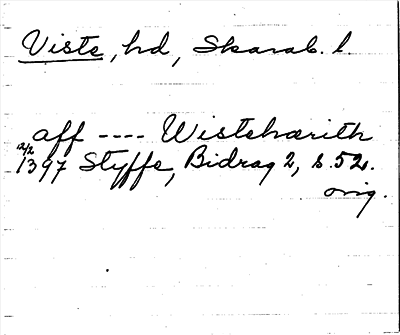 Viste, hd, Skarab. l.
aff ---- Wistehærith
2/2 1397 Styffe, Bidrag 2, s. 52.
orig.